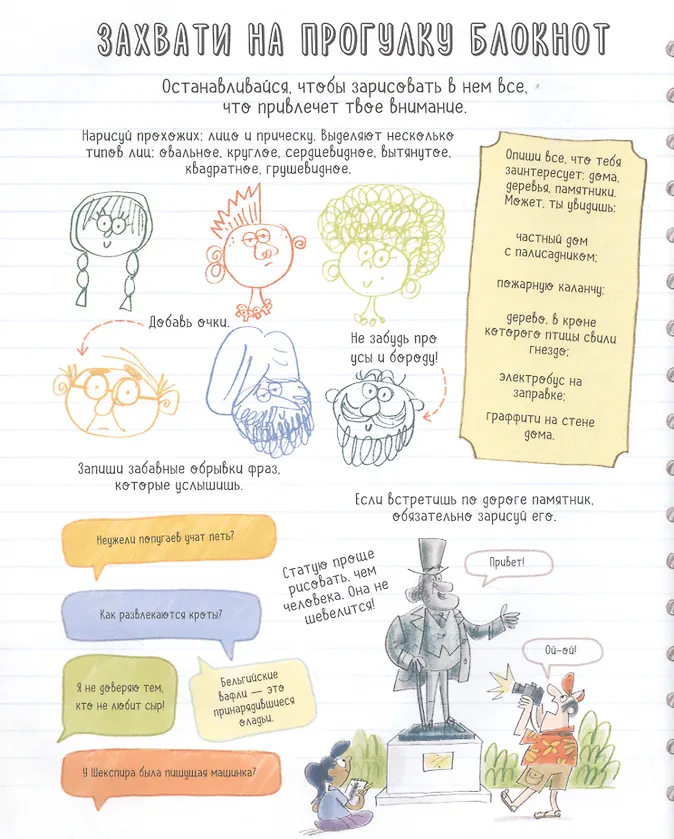 ЗАХВАТИ НА ПРОГУЛКУ БЛОКНОТ
Останавливайся, чтобы зарисовать в нем все,
что привлечет твое внимание.
Нарисуй прохожих: лицо и прическу. Выделяют несколько
типов лиц: овальное, круглое, сердцевидное, вытянутое,
квадратное, грушевидное.
Добавь очки.
Не забудь про
усы и бороду!
Опиши все, что тебя
заинтересует: дома,
деревья, памятники.
Может, ты увидишь:
частный дом
с палисадником;
пожарную каланчу;
дерево, в кроне
которого птицы свили
гнездо;
электробус на
заправке;
граффити на стене
дома.
Запиши забавные обрывки фраз,
которые услышишь.
Неужели попугаев учат петь?
Как развлекаются кроты?
Я не доверяю тем,
кто не любит сыр!
Бельгийские
вафли — это
принарядившиеся
оладьи.
У Шекспира была пишущая машинка?
Если встретишь по дороге памятник,
обязательно зарисуй его.
Статую проще
рисовать, чем
человека. Она не
шевелится!
Привет!
Ой-ой!